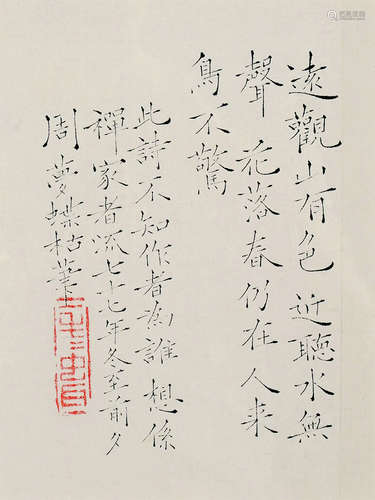 遠觀山有色 近聽水無
聲 花落春仍在人来
鳥不驚
此詩不知作者為誰想係
禪家者流七十七年冬至前夕
周夢蝶枯筆